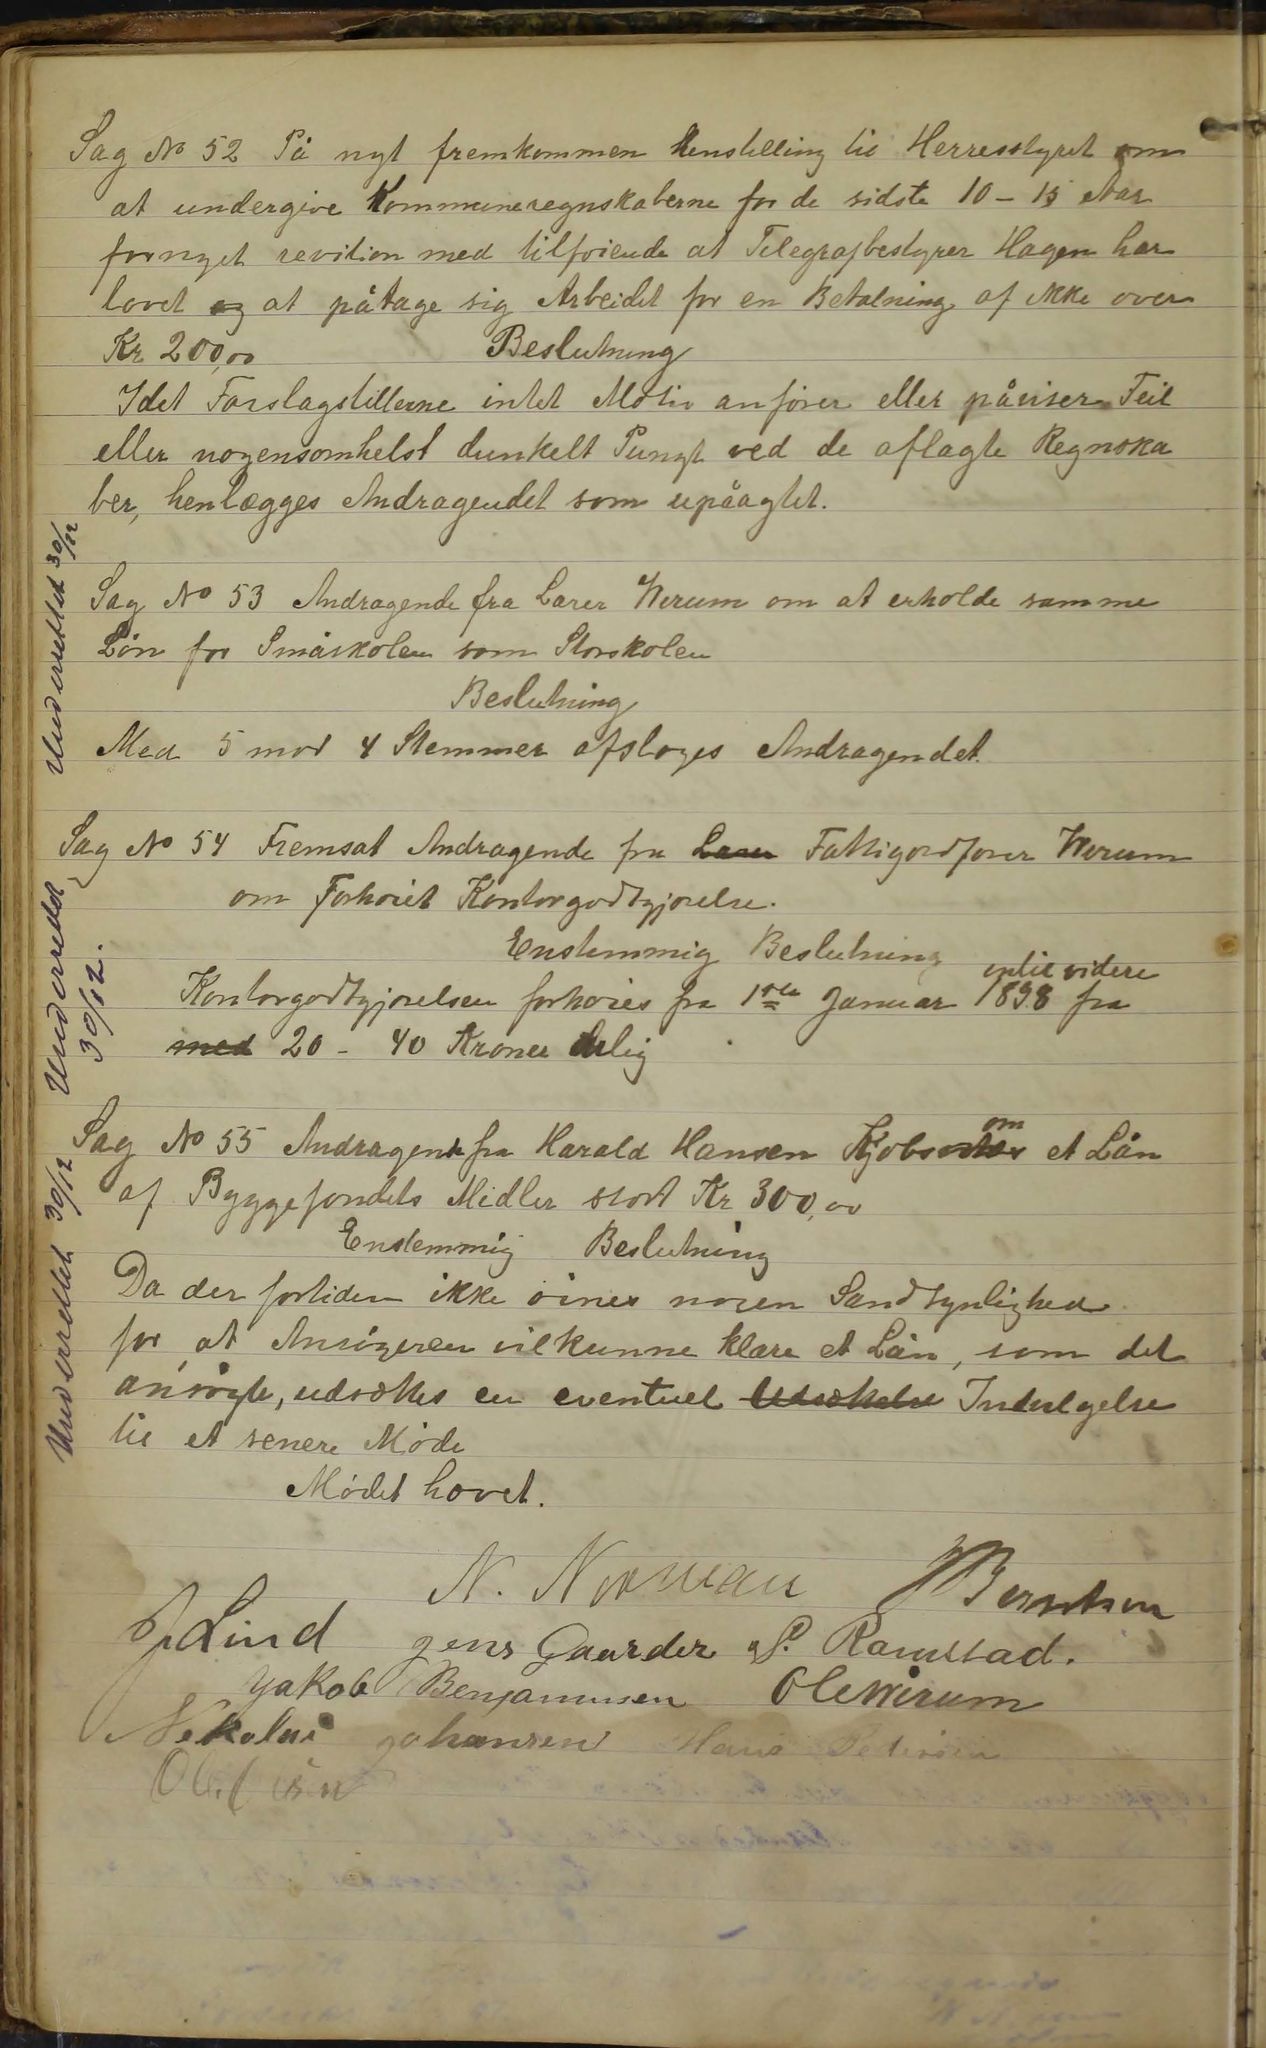 Sag No 52 På nyt fremkommen henstilling til Herresstyret om
at undergive Kommuneregnskaberne for de sidste 10 - 15 Aar
fornyet revition med tilføiende at Telegrafbestyrer Hagen har
lovet og at påtage sig Arbeidet for en Betalning af ikke over
Kr 200,00 Beslutning
Idet Forslagstillerne intet Motiv anfører eller påviser Feil
eller nogensomhelst dunkelt Pungt ved de aflagte Regnska
ber, henlægges Andragendet som upåagtet.
Underrettet 30/12
Sag No 53 Andragende fra Lærer Werum om at erholde samme
Løn for Småskolen som Storskolen
Beslutning
Med 5 mod 4 Stemmer afsloges Andragendet.
Underrettet
30/12.
Sag No 54 Fremsat Andragende fra Lærer Fattigordfører Werum
om Forhøiet Kontorgodtgjørelse.
Enstemmig Beslutning
indtil videre
Kontorgodtgjørelsen forhøies fra 1ste Januar 1898 fra
med 20 - 40 Kroner årlig
Underrettet 30/12
Sag No 55 Andragende fra Harald Hansen om et Lån
af Byggefondets Midler stort Kr 300,00
Enstemmig Beslutning
Da der fortiden ikke øines nogen Sandsynlighed
for, at Ansøgeren vil kunne klare et Lån, som det
ansøgte, udsættes en eventuel Udsættelse Indvilgelse
til et senere Møde
Mødet hævet.
N. Norman J Berntsen
J Lind Jens Gaarder P. Ramstad.
Jakob Benjaminsen Ole Wirum
Nekolai Johansen Hans Pedersen